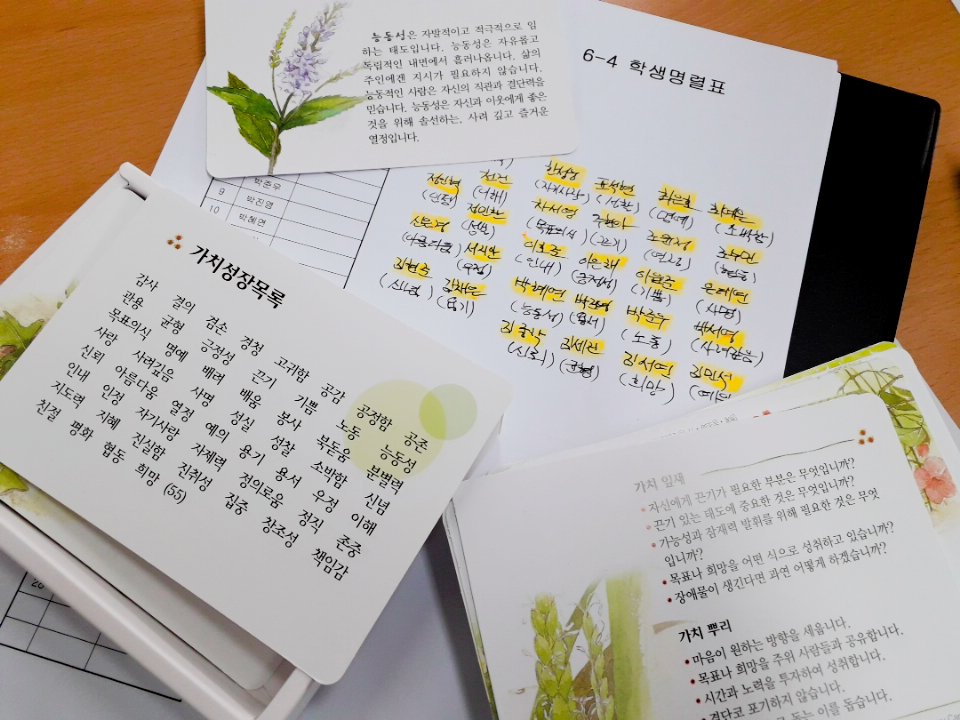 능동성은 자발적이고 적극적으로 임
하는 태도입니다. 능동성은 자유롭고
독립적인 내면에서 흘러나옵니다. 삶의
주인에겐 지시가 필요하지 않습니다.
능동적인 사람은 자신의 직관과 결단력을
믿습니다. 능동성은 자신과 이웃에게 좋은
것을 위해 솔선하는, 사려 깊고 즐거운
열정입니다.
6-4 학생명렬표
박준우
9 박진영
10 박혜연
한성상
(자기사랑)
(이해)
(인정)
(소박함)
차서영
(목표의식)
(끈기)
조윤정
(협동)
(아름다움)
서시안
(우정)
이호준
(인내)
이은채
(긍정성)
(기쁨)
윤채연
(사명)
(신념)
(용기)
박혜연
(능동성)
박진영
(용서)
박준우
(노동)
박서영
(사려깊음)
(신뢰)
김세진
김서연
(희망)
김민서
가치성장목록
감사 결의 겸손 경청 고귀함 공감 공정함 공존
관용 균형 긍정성 끈기 기쁨 노동 능동성
목표의식 명예 배려 배움 봉사 북돋움 분별력
사랑 사려깊음 사명 성실 성찰 소박함 신념
신뢰 아름다움 열정 예의 용기 용서 우정 이해
인내 인정 자기사랑 자제력 정의로움 정직 존중
지도력 지혜 진실함 진취성 집중 창조성 책임감
친절 평화 협동 희망 (55)
가치 일재
자신에게 끈기가 필요한 부분은 무엇입니까?
끈기 있는 태도에 중요한 것은 무엇입니까?
가능성과 잠재력 발휘를 위해 필요한 것은 무엇
입니까?
목표나 희망을 어떤 식으로 성취하고 있습니까?
장애물이 생긴다면 과연 어떻게 하겠습니까?
가치 뿌리
마음이 원하는 방향을 세웁니다.
목표나 희망을 주위 사람들과 공유합니다.
시간과 노력을 투자하여 성취합니다.
결단코 포기하지 않습니다.
이를 돕습니다.